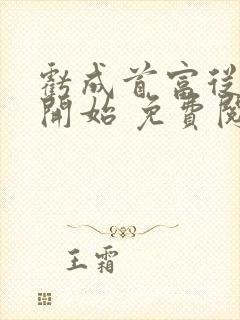 虧成首富從
開始 免費閱
王霜